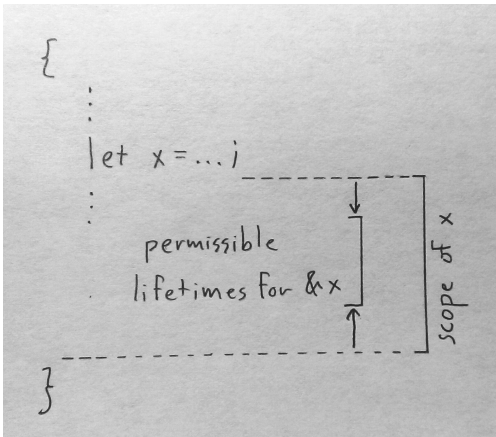 {
⋮
let x = ...;
⋮
permissible
lifetimes for &x
scope of x
}